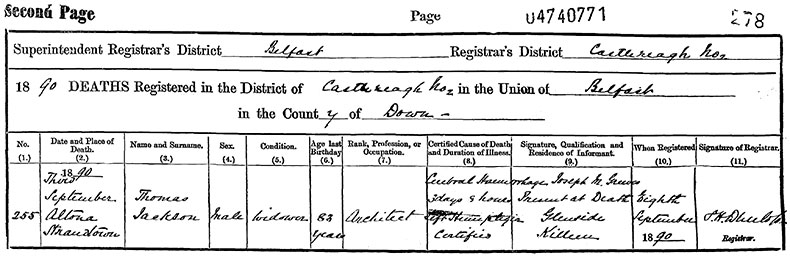 Second Page
Page
U4740771
278
Superintendent Registrar's District Belfast Registrar's District Castlereagh No 2
1890 DEATHS Registered in the District of Castlereagh No 2 in the Union of Belfast
in the County of Down
No. (1.)
Date and Place of Death. (2.)
Name and Surname. (3.)
Sex. (4.)
Condition. (5.)
Age last Birthday (6.)
Rank, Profession, or Occupation. (7.)
Certified Cause of Death and Duration of Illness. (8.)
Signature, Qualification and Residence of Informant. (9.)
When Registered (10.)
Signature of Registrar. (11.)
255
1890
Third
September
Altona
Strandtown
Thomas
Jackson
Male
widower
83
years
Architect
Cerebral Haemorrhage
3 days 8 hours
Left Hemiplegia
Certified
Joseph M. Greeves
Present at Death
Glenside
Killeen
Eighth
September
1890
Dunlop
Registrar.